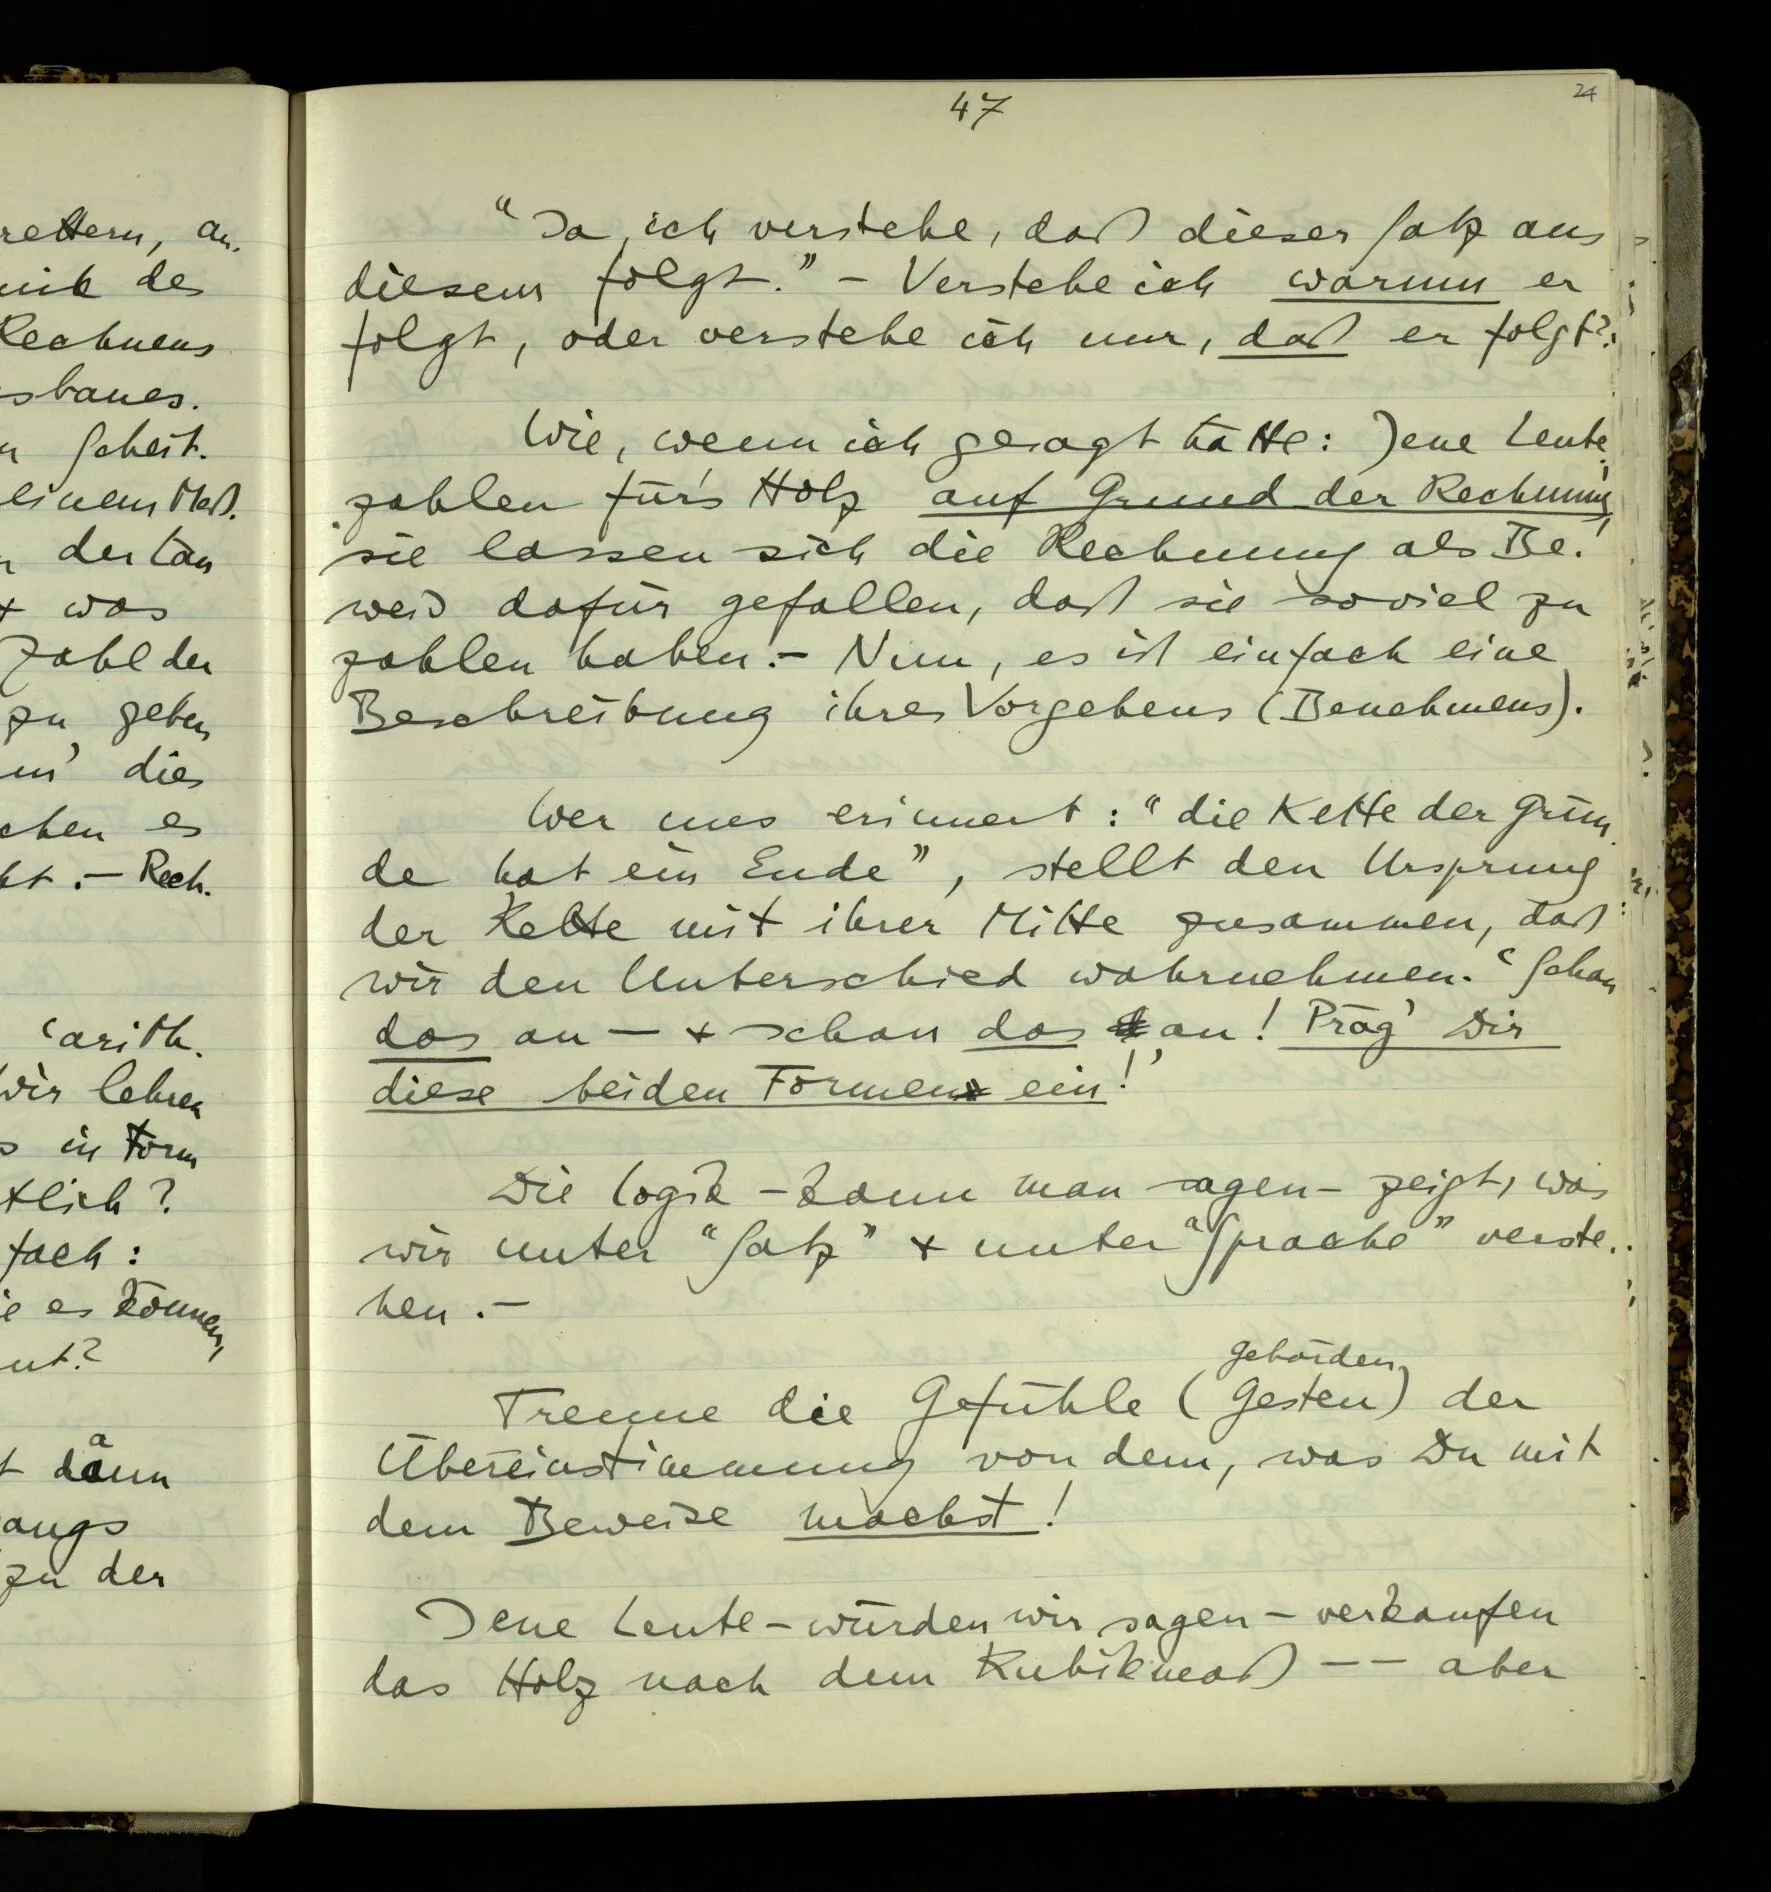 47
24
rettern, an.
nik des
Rechnens
sbaues.
n Scheit.
einem Maß.
der tan
+ was
Zahl der
zu geben
dies
chen es
kt. – Rech.
'arith.
Wir lehren
s in Form
tlich?
fach:
ie es können,
nt?
t dann
a
angs
zu der
"Ja, ich verstehe, daß dieser Satz aus
diesem folgt." – Verstehe ich warum er
folgt, oder verstehe ich nur, daß er folgt?
Wie, wenn ich gesagt hätte: Jene Leute
zahlen für's Holz auf Grund der Rechnung;
sie lassen sich die Rechnung als Be-
weis dafür gefallen, daß sie soviel zu
zahlen haben. – Nun, es ist einfach eine
Beschreibung ihres Vorgehens (Benehmens).
Wer uns erinnert: "die Kette der Grün-
de hat ein Ende", stellt den Ursprung
der Kette mit ihrer Mitte zusammen, daß
wir den Unterschied wahrnehmen. 'Schau
das an – + schau das an! Präg' Dir
diese beiden Formen ein!'
Die Logik – kann man sagen – zeigt, was
wir unter "Satz" + unter "Sprache" verste-
hen. –
Gebärden
Trenne die Gefühle (Gesten) der
Übereinstimmung von dem, was Du mit
dem Beweise machst!
Jene Leute – würden wir sagen – verkaufen
das Holz nach dem Kubikmaß –– aber